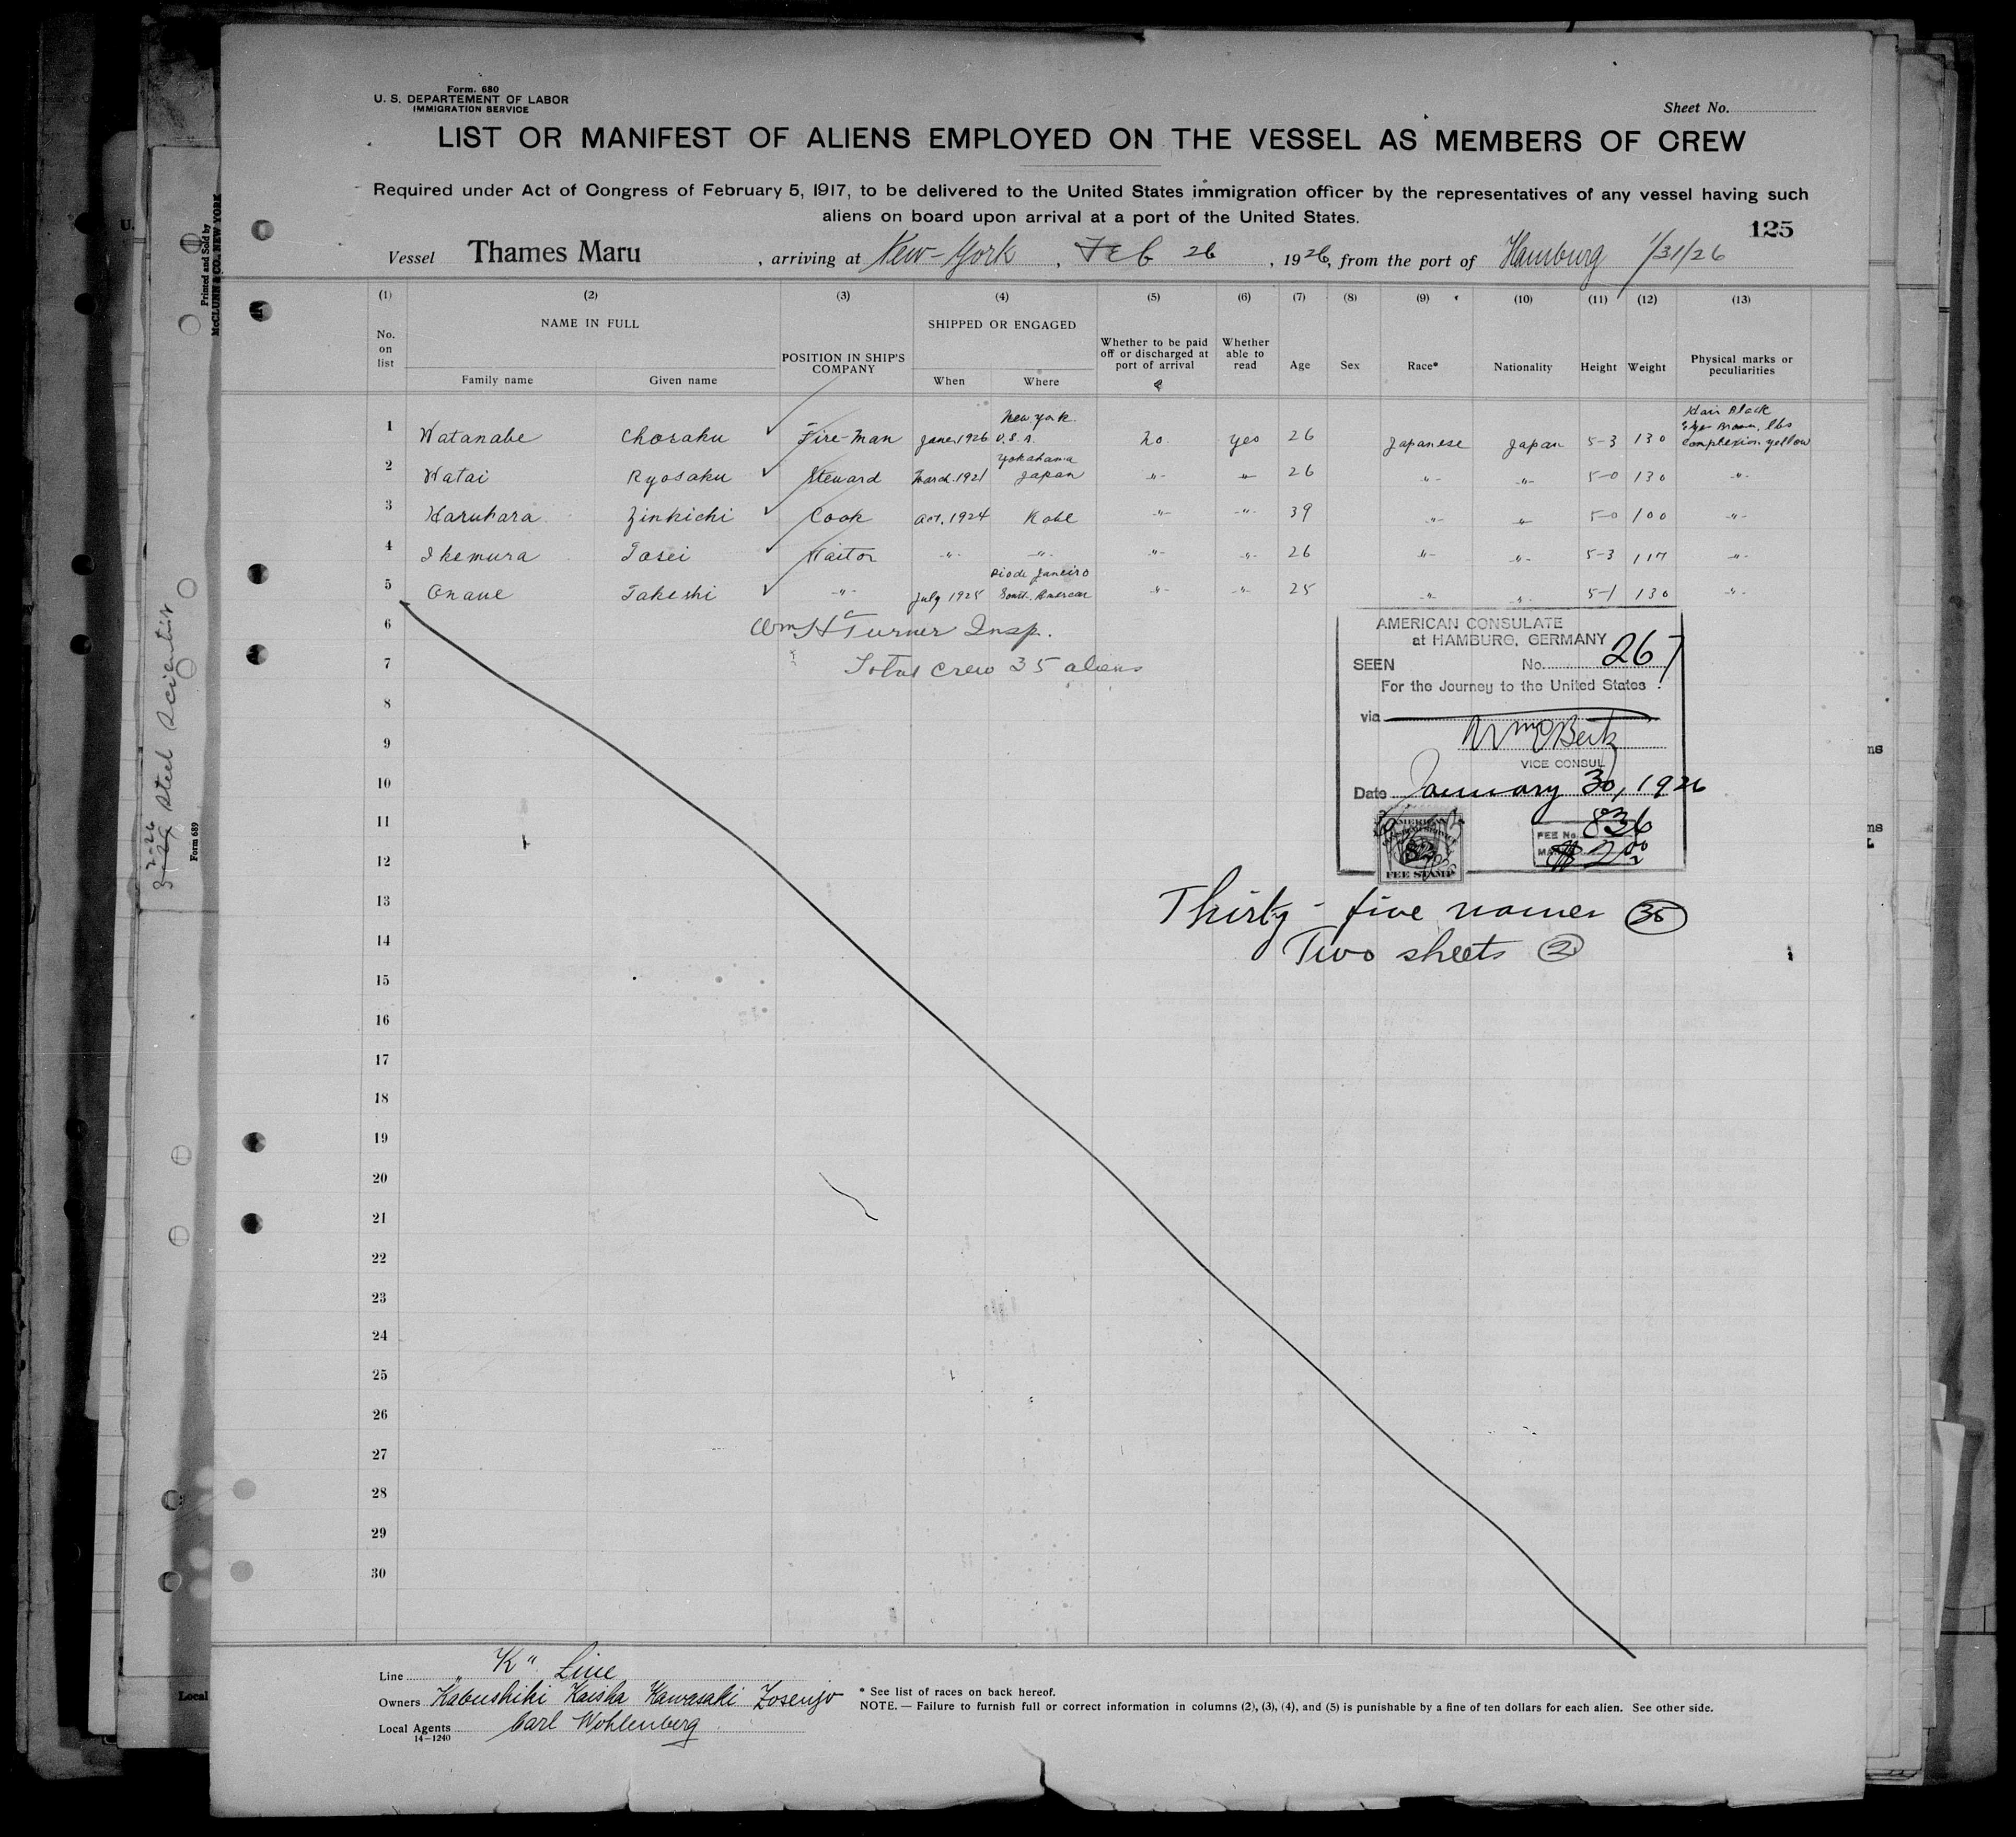 Form. 680
U. S. DEPARTEMENT OF LABOR
IMMIGRATION SERVICE
Sheet No.
LIST OR MANIFEST OF ALIENS EMPLOYED ON THE VESSEL AS MEMBERS OF CREW
Required under Act of Congress of February 5, 1917, to be delivered to the United States immigration officer by the representatives of any vessel having such
aliens on board upon arrival at a port of the United States.
125
Vessel Thames Maru, arriving at New-York, Feb 26, 1926, from the port of Hamburg 1/31/26
(1) (2) (3) (4) (5) (6) (7) (8) (9) (10) (11) (12) (13)
No. on list
NAME IN FULL
Family name Given name
POSITION IN SHIP'S COMPANY
SHIPPED OR ENGAGED
When Where
Whether to be paid off or discharged at port of arrival
Whether able to read
Age Sex Race* Nationality Height Weight
Physical marks or peculiarities
1 Watanabe Chosaku Fire-Man Jane 1926 New York U.S.A. no. yes 26 Japanese Japan 5-3 130 Hair Black Eye Brown, lbs complexion yellow
2 Watai Ryosaku Steward March 1921 Yokohama Japan -"- -"- 26 -"- -"- 5-0 130 -"-
3 Haruhara Zinkichi Cook Oct. 1924 Kobe -"- -"- 39 -"- -"- 5-0 100 -"-
4 Ikemura Tosei Waitor -"- -"- -"- -"- 26 -"- -"- 5-3 117 -"-
5 Onaue Takeshi -"- July 1925 Rio de Janeiro South. American -"- -"- 25 -"- -"- 5-1 130 -"-
6 Wm H Turner Insp.
7 Total crew 35 aliens
8
9
10
11
12
13
14
15
16
17
18
19
20
21
22
23
24
25
26
27
28
29
30
AMERICAN CONSULATE
at HAMBURG, GERMANY
SEEN No. 267
For the Journey to the United States.
via
VICE CONSUL
Date January 30, 1926
AMERICAN
FEE STAMP
FEE No. 836
$2.00
Thirty-five names 35
Two sheets 2
Line "K" Line
Owners Kabushiki Kaisha Kawasaki Zosenjo
Local Agents Carl Wohlenberg
14-1240
* See list of races on back hereof.
NOTE. — Failure to furnish full or correct information in columns (2), (3), (4), and (5) is punishable by a fine of ten dollars for each alien. See other side.
Printed and Sold by
McCLUNN & CO., NEW YORK
Steel Scientist
Form 689
U.
Local
ns
ms